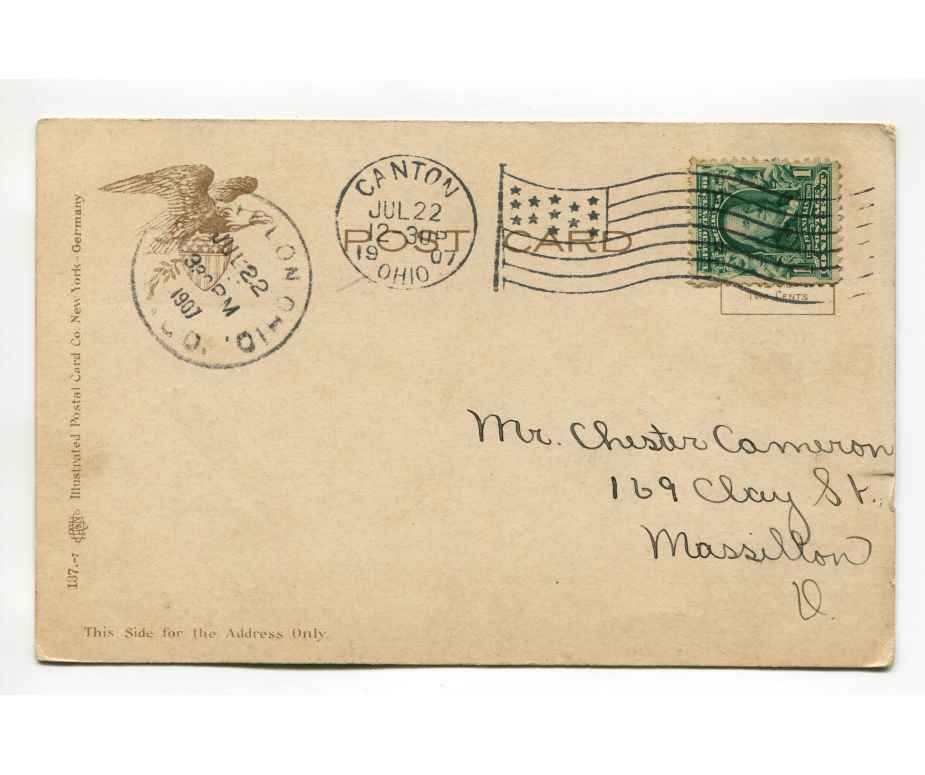 CANTON
JUL 22
12-30P
19 07
OHIO
POST CARD
LLON OHIO.
JUL 22
330PM
1907
C.D.
1 1
Two Cents
Mr. Chester Cameron
169 Clay St.
Massillon
O.
137.-7 Illustrated Postal Card Co. New York - Germany
This Side for the Address Only.